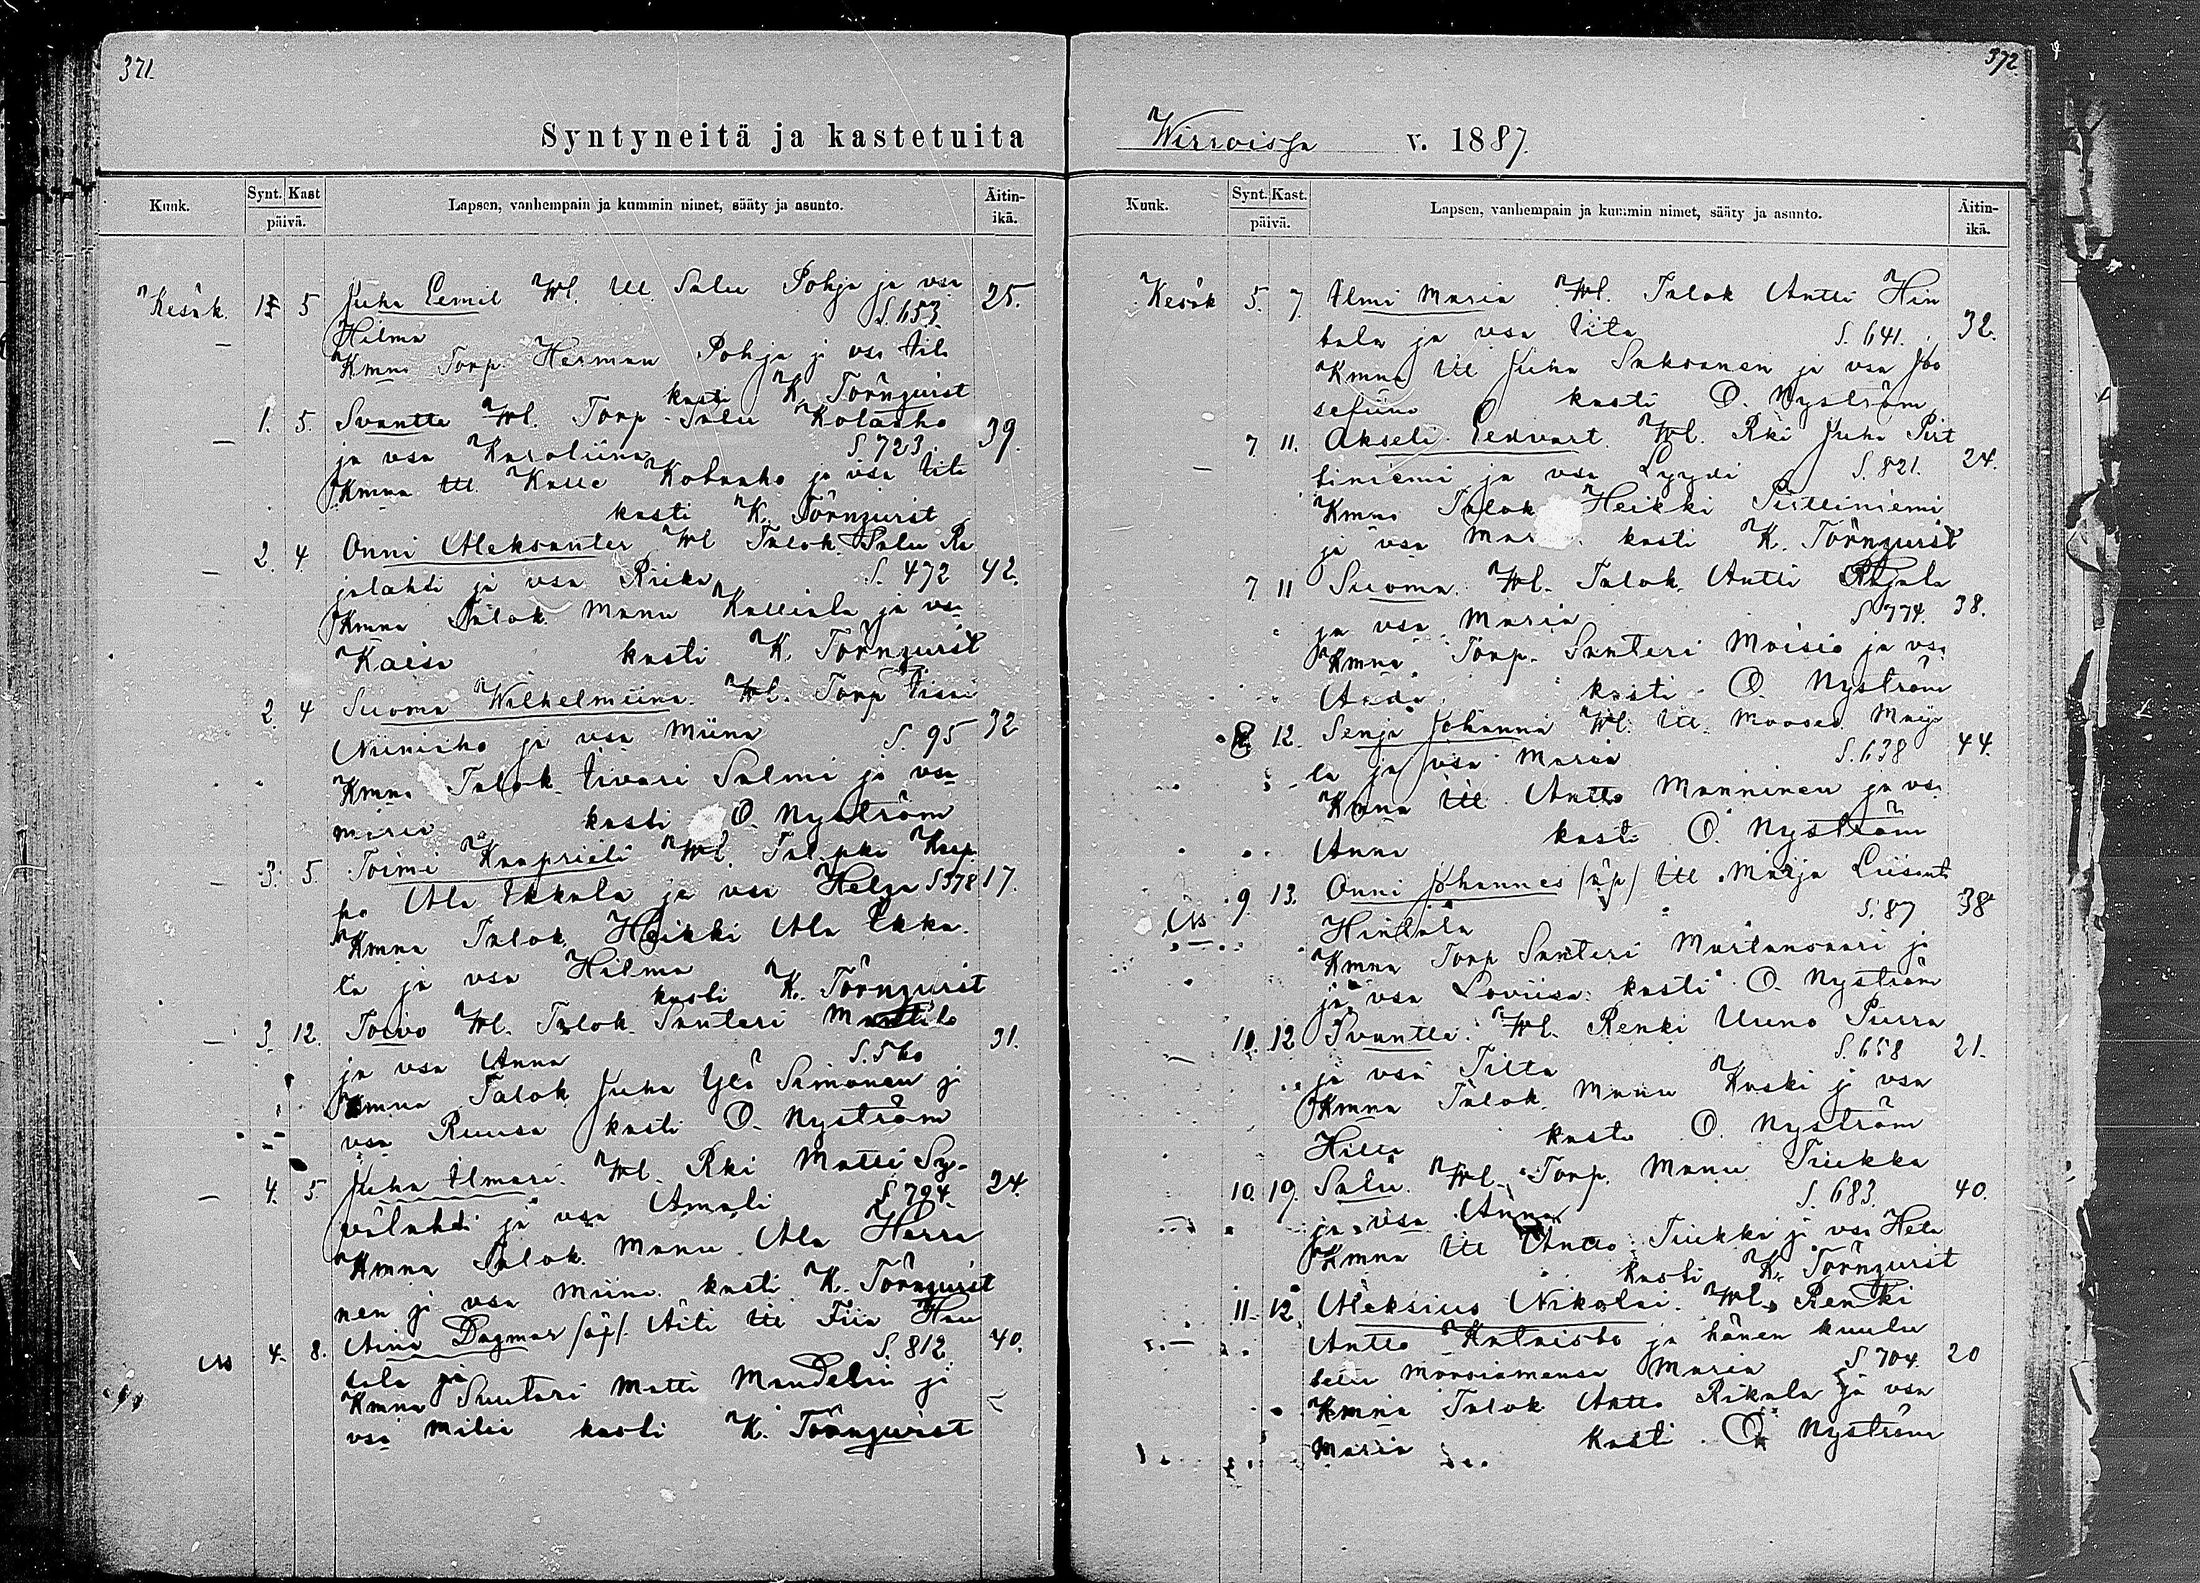 371.
Syntyneitä ja kastetuita
Kuuk. Synt. Kast päivä. Lapsen, vanhempain ja kummin nimet, sääty ja asunto. Äitin-ikä.
Kesäk. 1 5 Juha Eemil Wl. Itl. Salu Pohja ja vsa 25.
Hilma S. 653
Kmna Torp. Herman Pohja ja vsa
kasti K. Törnqvist
1. 5. Svantte Wl. Torp. Salu Kotaaho 39.
ja vsa Karoliina S 723.
Kmna Itl. Kalle Kotaaho ja vsa
kasti K. Törnqvist
2. 4 Onni Aleksanter Wl Talok. Salu Ra
jalahti ja vsa Riika S. 472 42.
Kmna Talok. Manu Kalliala ja vsa
Kaisa kasti K. Törnqvist
2. 4 Suoma Wilhelmiina. Wl. Torp Iisai
Niiniaho ja vsa Miina S. 95 32
Kmna Talok. Iivari Salmi ja vsa
Maria kasti O. Nyström
3. 5. Toimi Kaaprieli Wl. Tal.pka Kaap
po Ala Ikkala ja vsa Helga S 378 17.
Kmna Talok. Heikki Ala Ikka
la ja vsa Hilma
kasti K. Törnqvist
3. 12. Toivo Wl. Talok. Santeri Mattila
ja vsa Anna S. 560 31.
Kmna Talok. Juha Ylä Simonen j
vsa Ruusa kasti O. Nyström
4. 5 Juha Ilmari. Wl. Rki Matti Sy-
välahti ja vsa Amali S 794. 24.
Kmna Talok. Manu Ala Herra
nen j vsa Miina kasti K. Törnqvist
4. 8. Aina Dagmar /äp/. Äiti Itl Fiia Hau
tala S. 812 40.
Kmna Suutari Matti Mandelin ja
vsa Milia kasti K. Törnqvist
372
Wirroissa v. 1887.
Kuuk. Synt. Kast. päivä. Lapsen, vanhempain ja kummin nimet, sääty ja asunto. Äitin-ikä.
Kesäk 5. 7. Ilmi Maria Wl. Talok Antti Hin
tala ja vsa Iita S. 641. 32.
Kmna Itl Juha Saksanen ja vsa Joo
sefiina kasti O. Nyström
7 11. Akseli Eedvart. Wl. Rki Juha Pirt
tiniemi ja vsa Lyydi S. 821. 24.
Kmna Talok Heikki Pirttiniemi
ja vsa kasti K. Törnqvist
7. 11 Suoma. Wl. Talok. Antti Rajala
ja vsa Maria S 774. 38.
Kmna Torp. Santeri Moisio ja vsa
kasti O. Nyström
8 12. Senja Johanna Wl. Itl. Mooses Mäye
la ja vsa Maria S. 638 44.
Kmna Itl Antto Manninen ja vsa
Anna kasti O. Nyström
9. 13. Onni Johannes /äp/ Itl. Marja Liisant
Hintala S. 87 38
Kmna Torp Santeri Martansaari ja
ja vsa Loviisa kasti O. Nyström
10. 12 Svantte. Wl. Renki Uuno Purra
ja vsa Tilta S. 658 21.
Kmna Talok. Manu Kaski j vsa
Hilta kasti O. Nyström
10. 19. Salu. Wl. Torp. Manu Tiukka
ja vsa Anna S. 683. 40.
Kmna Itl Antto Tiukka ja vsa Heta
kasti K. Törnqvist
11. 12. Aleksius Nikolai. Wl. Renki
Antto Kalaisto ja hänen kuulu
tettu morsiamensa Maria S 704. 20
Kmna Talok Antto Rikala ja vsa
Maria kasti O Nyström